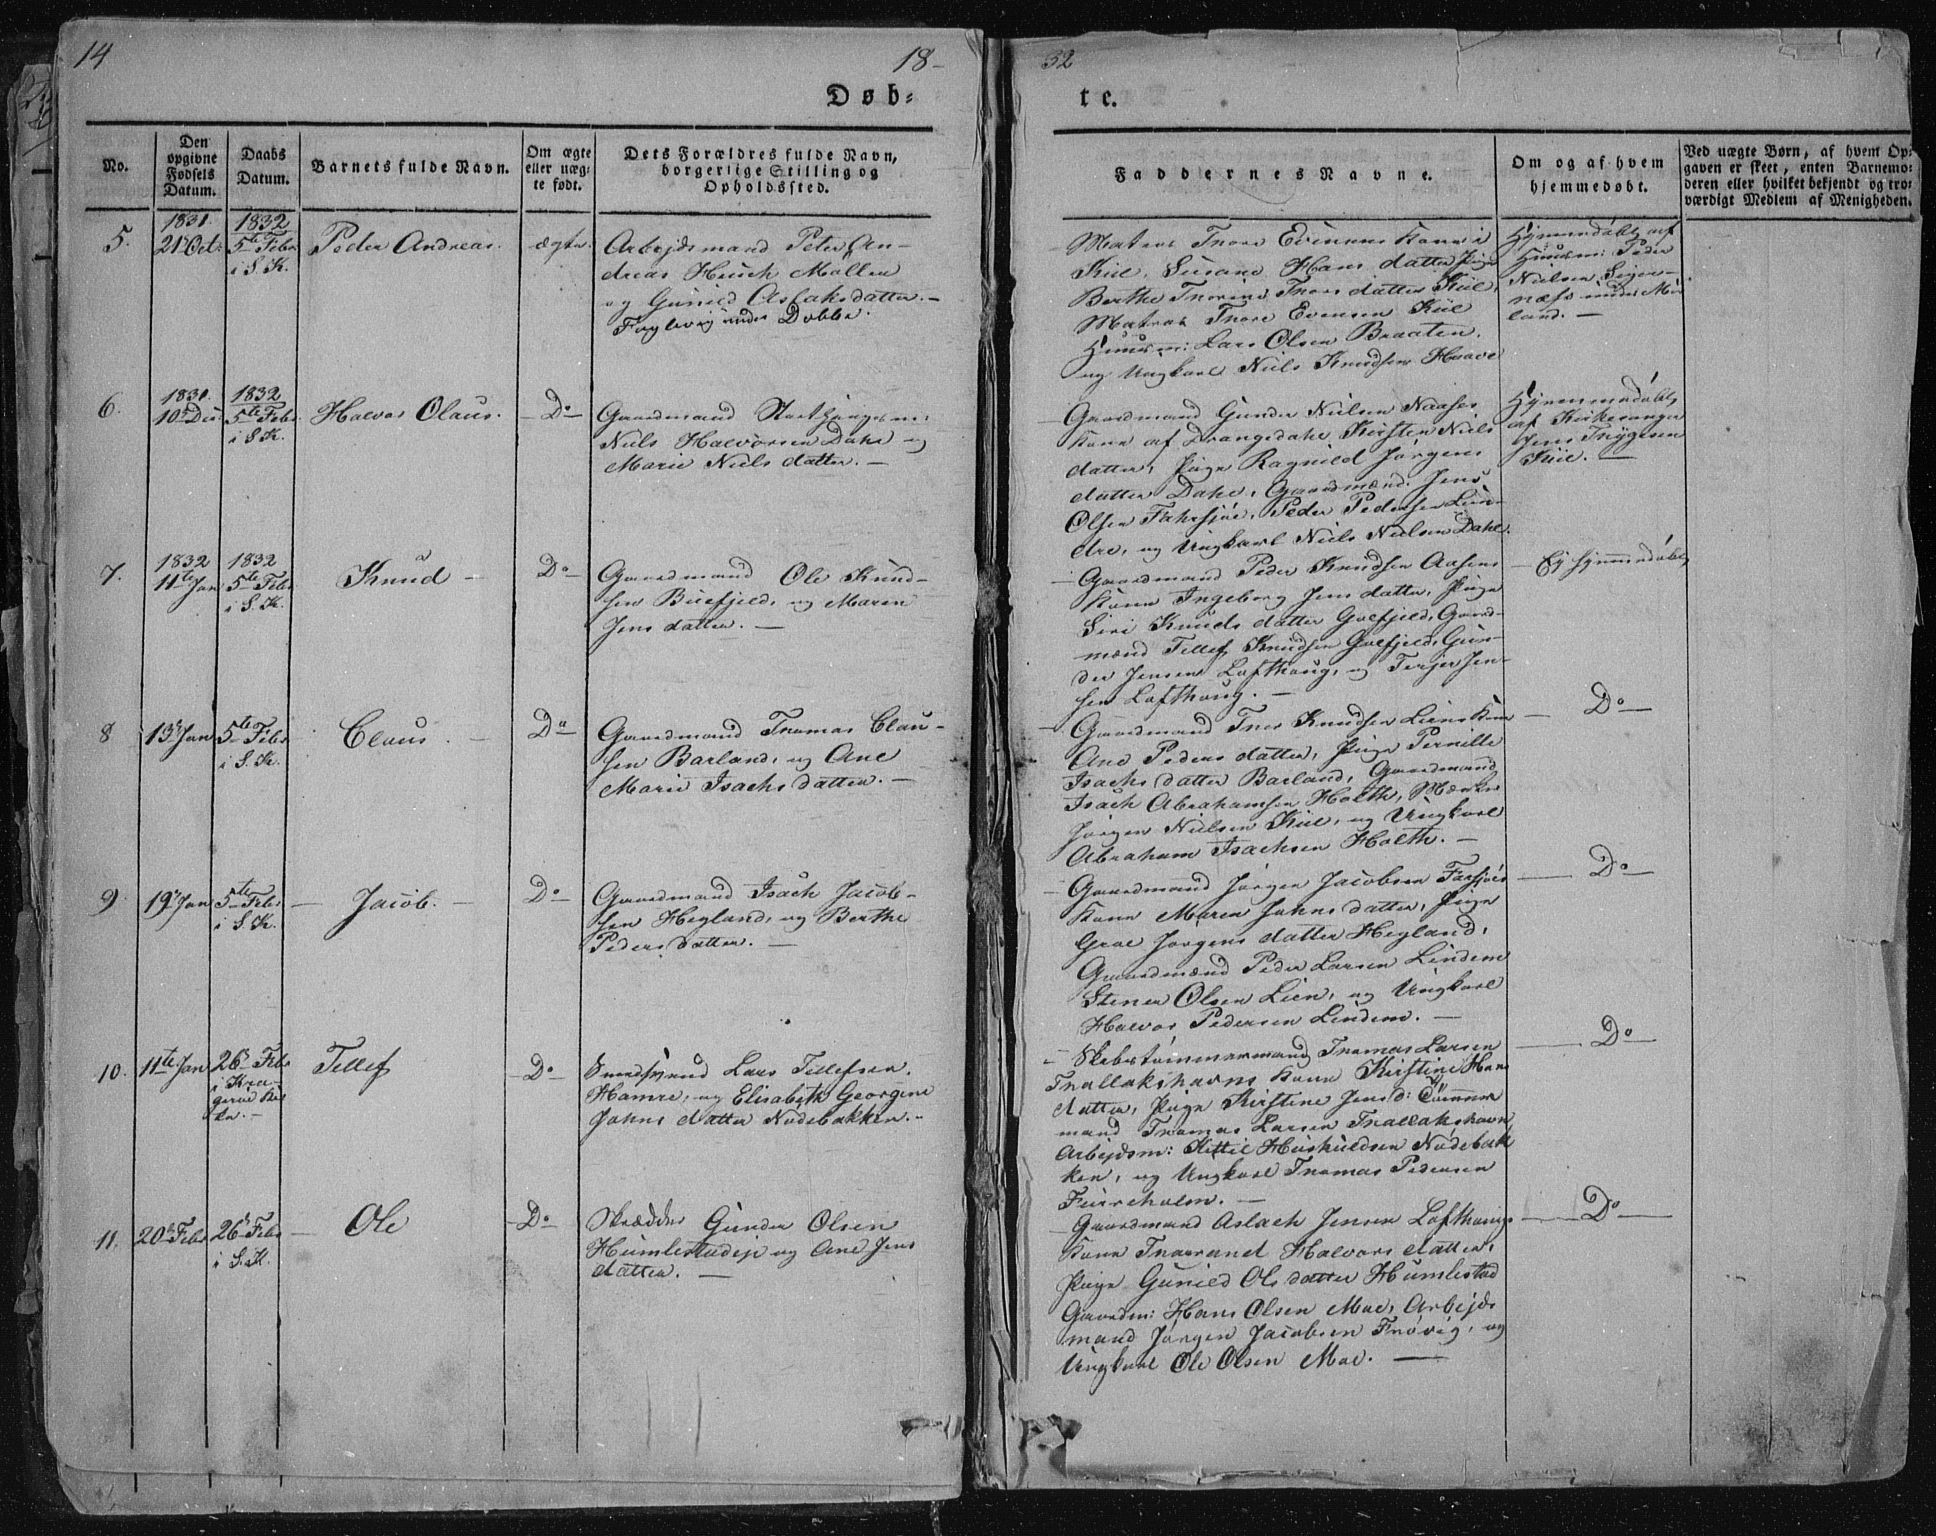 14
18-
32
Døb-
te.
No.
Den opgivne Fødsels Datum.
Daabs Datum.
Barnets fulde Navn.
Om ægte eller uægte født.
Dets Forældres fulde Navn, borgerlige Stilling og Opholdssted.
Faddernes Navne.
Om og af hvem hjemmedøbt.
Ved uægte Børn, af hvem Opgaven er skeet, enten Barnemoderen eller hvilket bekjendt og troværdigt Medlem af Menigheden.
5.
1831.
21 Oct:
1832
5te Febr
i S. K.
Peder Andreas.
ægte.
Arbejdsmand Peter An-
dreas Husch Møller
og Gunild Aslaksdatter. -
Fuglevig under Dobbe.
Matros Thore Evensens Kone i
Kiil, Susane Hans datter, Pige
Berthe Thorine Thors datter Kiil,
Matros Thore Evensen Kiil
Huusm: Lars Olsen Braaten,
og Ungkarl Niels Knudsen Haave
Hjemmedøbt af
Huusm: Peder
Nielsen
næs under
land. -
6.
1831.
10 Dec:
1832
5te Febr
i S. K.
Halvor Olaus.
Do
Gaardmand
Niels Halvorsen Dahl og
Marie Niels datter. -
Gaardmand Gunder Nielsen Naases
Kone af Drangedahl Kirsten Niels
datter, Pige Ragnild Jørgens
datter Dahl, Gaardmænd: Jens
Olsen Farsjøe, Peder Pedersen Lin-
dre, og Ungkarl Niels Nielsen Dahl.
Hjemmedøbt
af Kirkesanger
Jens Thygesen
Kiil. -
7.
1832
11te Jan
1832
5te Febr
i S. K.
Knud -
Do
Gaardmand Ole Knud-
sen Buefjeld, og Maren
Jens datter. -
Gaardmand Peder Knudsen Aasens
Kone Ingeborg Jens datter, Pige
Siri Knuds datter Goefjeld, Gaard-
mænd Tellef Knudsen Goefjeld, Gun-
der Jensen Lofthaug, og Terjer Jen-
sen Lofthaug. -
Ej hjemmedøbt
8
13 Jan
5te Febr
i S. K.
Claus. -
Do
Gaardmand Thomas Clau-
sen Barland, og Ane
Marie Isachs datter. -
Gaardmand Thor Knudsen Liens Kone
Ane Peders datter, Pige Pernille
Isachs datter Barland, Gaardmand
Isach Abrahamsen Holth,
Jørgen Nielsen Kiil, og Ungkarl
Abraham Isachsen Holth. -
Do
9
19 Jan
5te Febr
i S. K.
Jacob. -
Do
Gaardmand Isach Jacob-
sen Hegland, og Berthe
Peders datter. -
Gaardmand Jørgen Jacobsen Farsjøes
Kone Maren Johns datter, Pige
Groe Jørgens datter Hegland,
Gaardmænd Peder Larsen Lindem
Stener Olsen Lien, og Ungkarl
Halvor Pedersen Lindem. -
Do
10.
11te Jan
26 Febr
i Kra-
gerøe Kir
ke. -
Tellef
Do
Lars Tellefsen
Hamre, og Elisabeth Georgine
Johns datter Nodebakken. -
Skibstømmermand Thomas Larsen
Thallakshavns Kone Kirstine Hans
datter, Pige Kirstine Jens d: Tømmer
mand Thomas Larsen Thallakshavn
Arbejdsm: Kittil Huskuldsen Nodebak
ken, og Ungkarl Thomas Pedersen
Furreholm. -
Do
11.
20 Febr
26 Febr
i S. K.
Ole
Do
Skrædder Gunder Olsen
Humlestadeje og Ane Jens
datter. -
Gaardmand Aslach Jensen Lofthaugs
Kone Thorand Halvors datter,
Pige Gunild Ols datter Humlestad
Gaardm: Hans Olsen Moe, Arbejds
mand Jørgen Jacobsen Frøvig, og
Ungkarl Ole Olsen Moe. -
Do